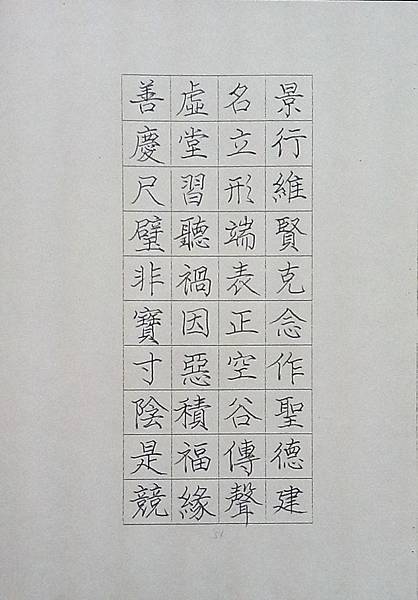 景行維賢克念作聖德建
名立形端表正空谷傳聲
虛堂習聽禍因惡積福緣
善慶尺璧非寶寸陰是競